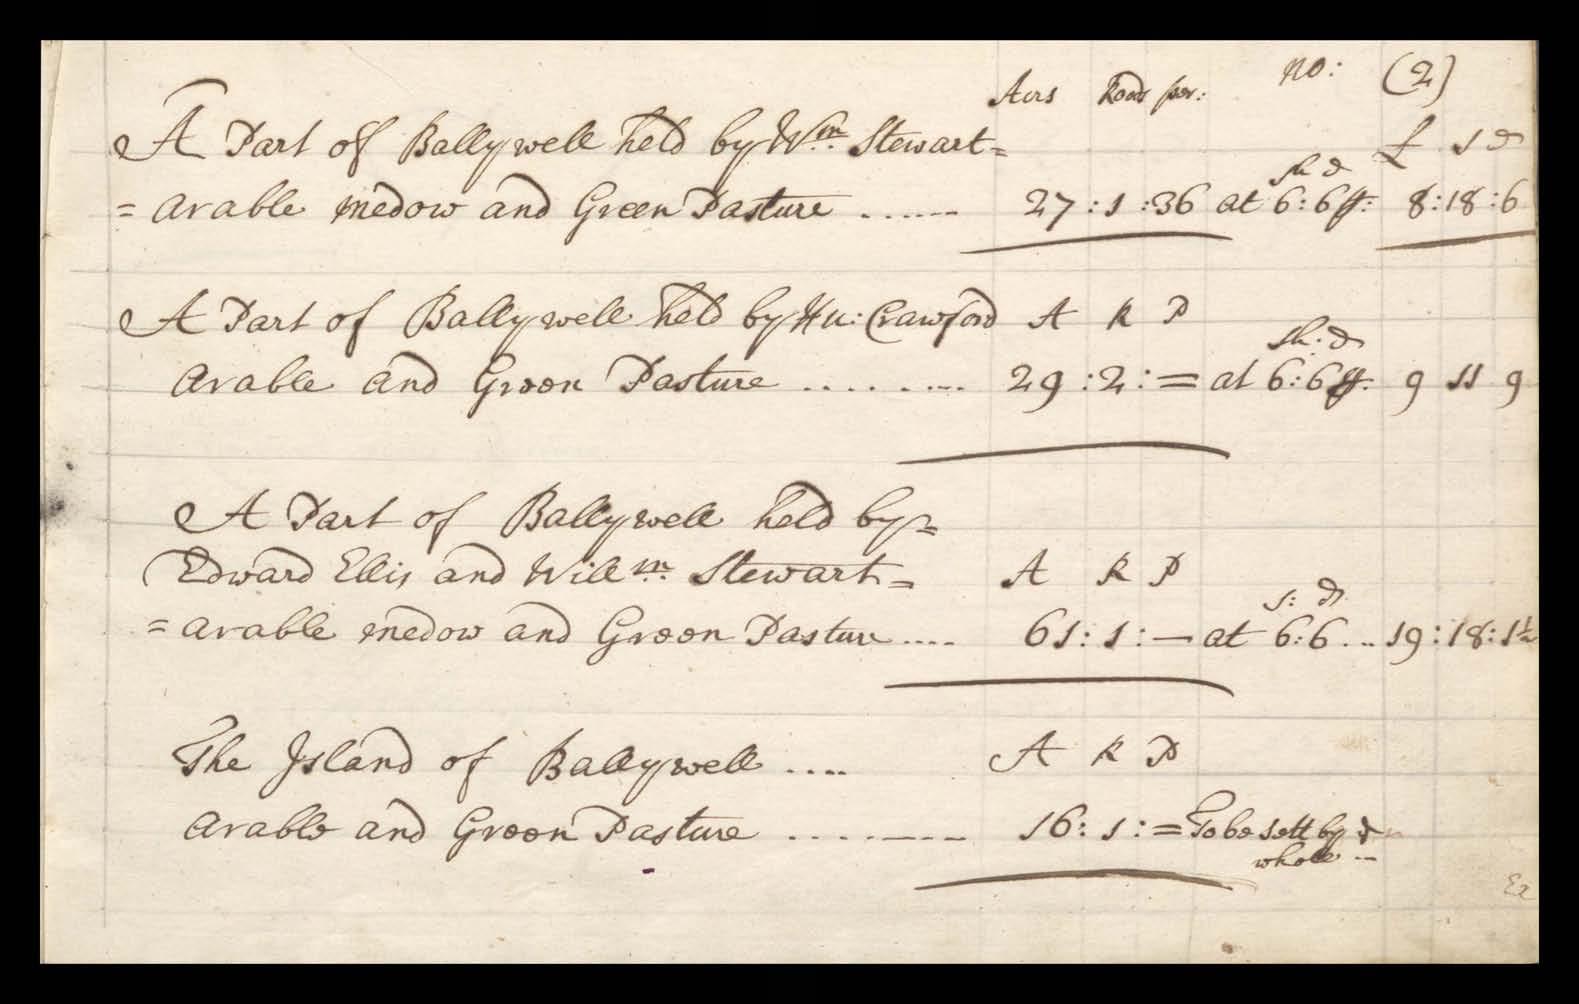 no: (2)
Acrs Roods per:
A Part of Ballywell held by Wm. Stewart= £ s d
sh d
=arable medow and Green Pasture ...... 27:1:36 at 6:6 8:18:6
A Part of Ballywell held by Hu: Crawford A R P
sh: d
arable and Green Pasture ........ 29:2:= at 6:6 9 11 9
A Part of Ballywell held by=
Edward Ellis and Willm. Stewart= A R P
s: d
=arable medow and Green Pasture .... 61:1:— at 6:6 ... 19:18:1½
The Island of Ballywell .... A R P
arable and Green Pasture ........ 16:1:= To be sett by
whole --
Ex